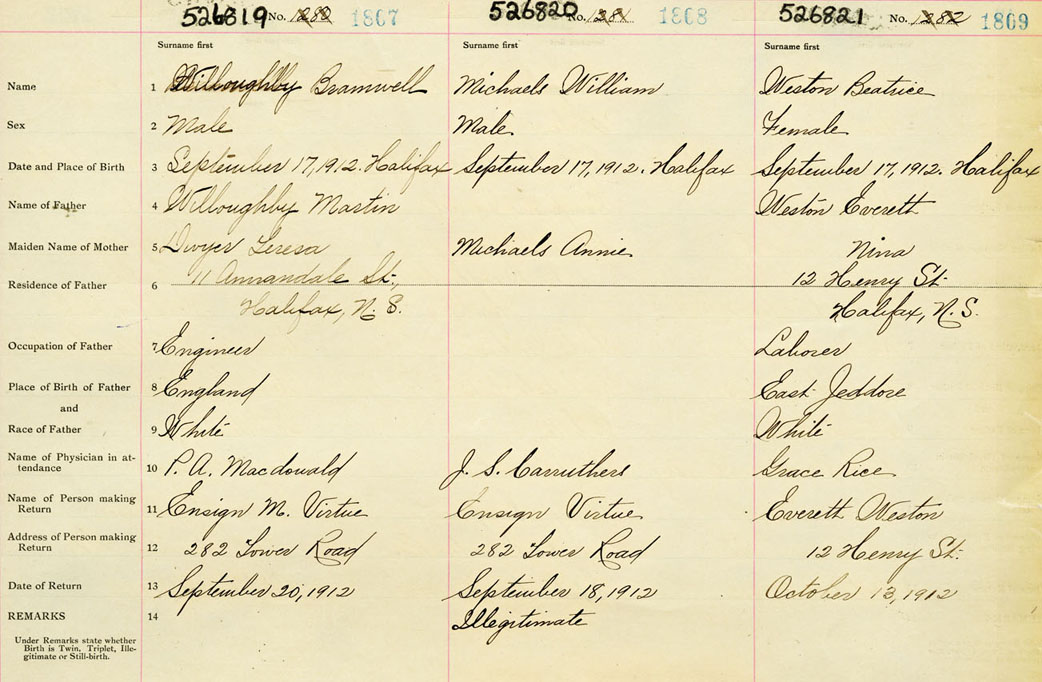 526819 No. 1280 1867 526820 No. 1281 1868 526821 No. 1282 1869
Surname first Surname first Surname first
Name 1 Willoughby Bramwell Michaels William Weston Beatrice
Sex 2 Male Male Female
Date and Place of Birth 3 September 17, 1912. Halifax September 17, 1912. Halifax September 17, 1912. Halifax
Name of Father 4 Willoughby Martin Weston Everett
Maiden Name of Mother 5 Dwyer Teresa Michaels Annie Nina
Residence of Father 6 11 Annandale St., 12 Henry St.
Halifax, N.S. Halifax, N.S.
Occupation of Father 7 Engineer Laborer
Place of Birth of Father 8 England East Jeddore
and
Race of Father 9 White White
Name of Physician in at-
tendance 10 P. A. Macdonald J. S. Carruthers Grace Rice
Name of Person making
Return 11 Ensign M. Virtue Ensign Virtue Everett Weston
Address of Person making
Return 12 282 Lower Road 282 Lower Road 12 Henry St.
Date of Return 13 September 20, 1912 September 18, 1912 October 13, 1912
REMARKS 14 Illegitimate
Under Remarks state whether
Birth is Twin, Triplet, Ille-
gitimate or Still-birth.